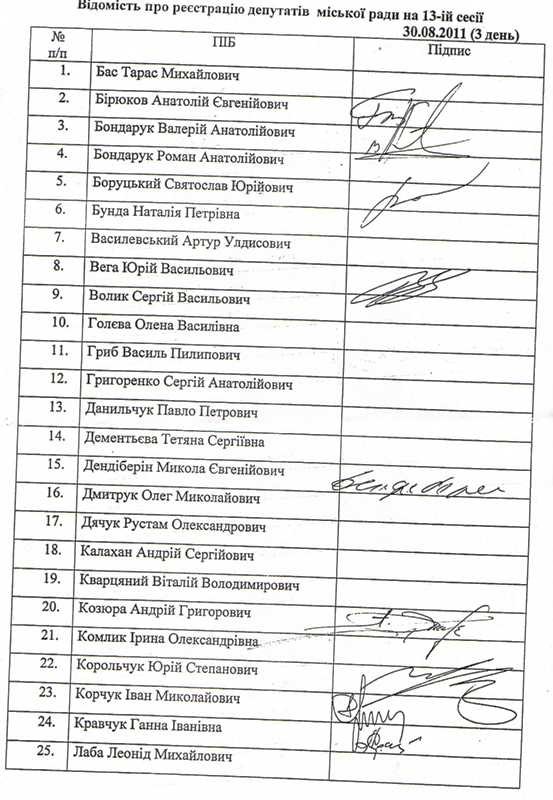 Відомість про реєстрацію депутатів міської ради на 13-ій сесії
30.08.2011 (3 день)
№ п/п ПІБ Підпис
1. Бас Тарас Михайлович
2. Бірюков Анатолій Євгенійович
3. Бондарук Валерій Анатолійович
4. Бондарук Роман Анатолійович
5. Боруцький Святослав Юрійович
6. Бунда Наталія Петрівна
7. Василевський Артур Улдисович
8. Вега Юрій Васильович
9. Волик Сергій Васильович
10. Голєва Олена Василівна
11. Гриб Василь Пилипович
12. Григоренко Сергій Анатолійович
13. Данильчук Павло Петрович
14. Дементьєва Тетяна Сергіївна
15. Дендіберін Микола Євгенійович
16. Дмитрук Олег Миколайович
17. Дячук Рустам Олександрович
18. Калахан Андрій Сергійович
19. Кварцяний Віталій Володимирович
20. Козюра Андрій Григорович
21. Комлик Ірина Олександрівна
22. Корольчук Юрій Степанович
23. Корчук Іван Миколайович
24. Кравчук Ганна Іванівна
25. Лаба Леонід Михайлович